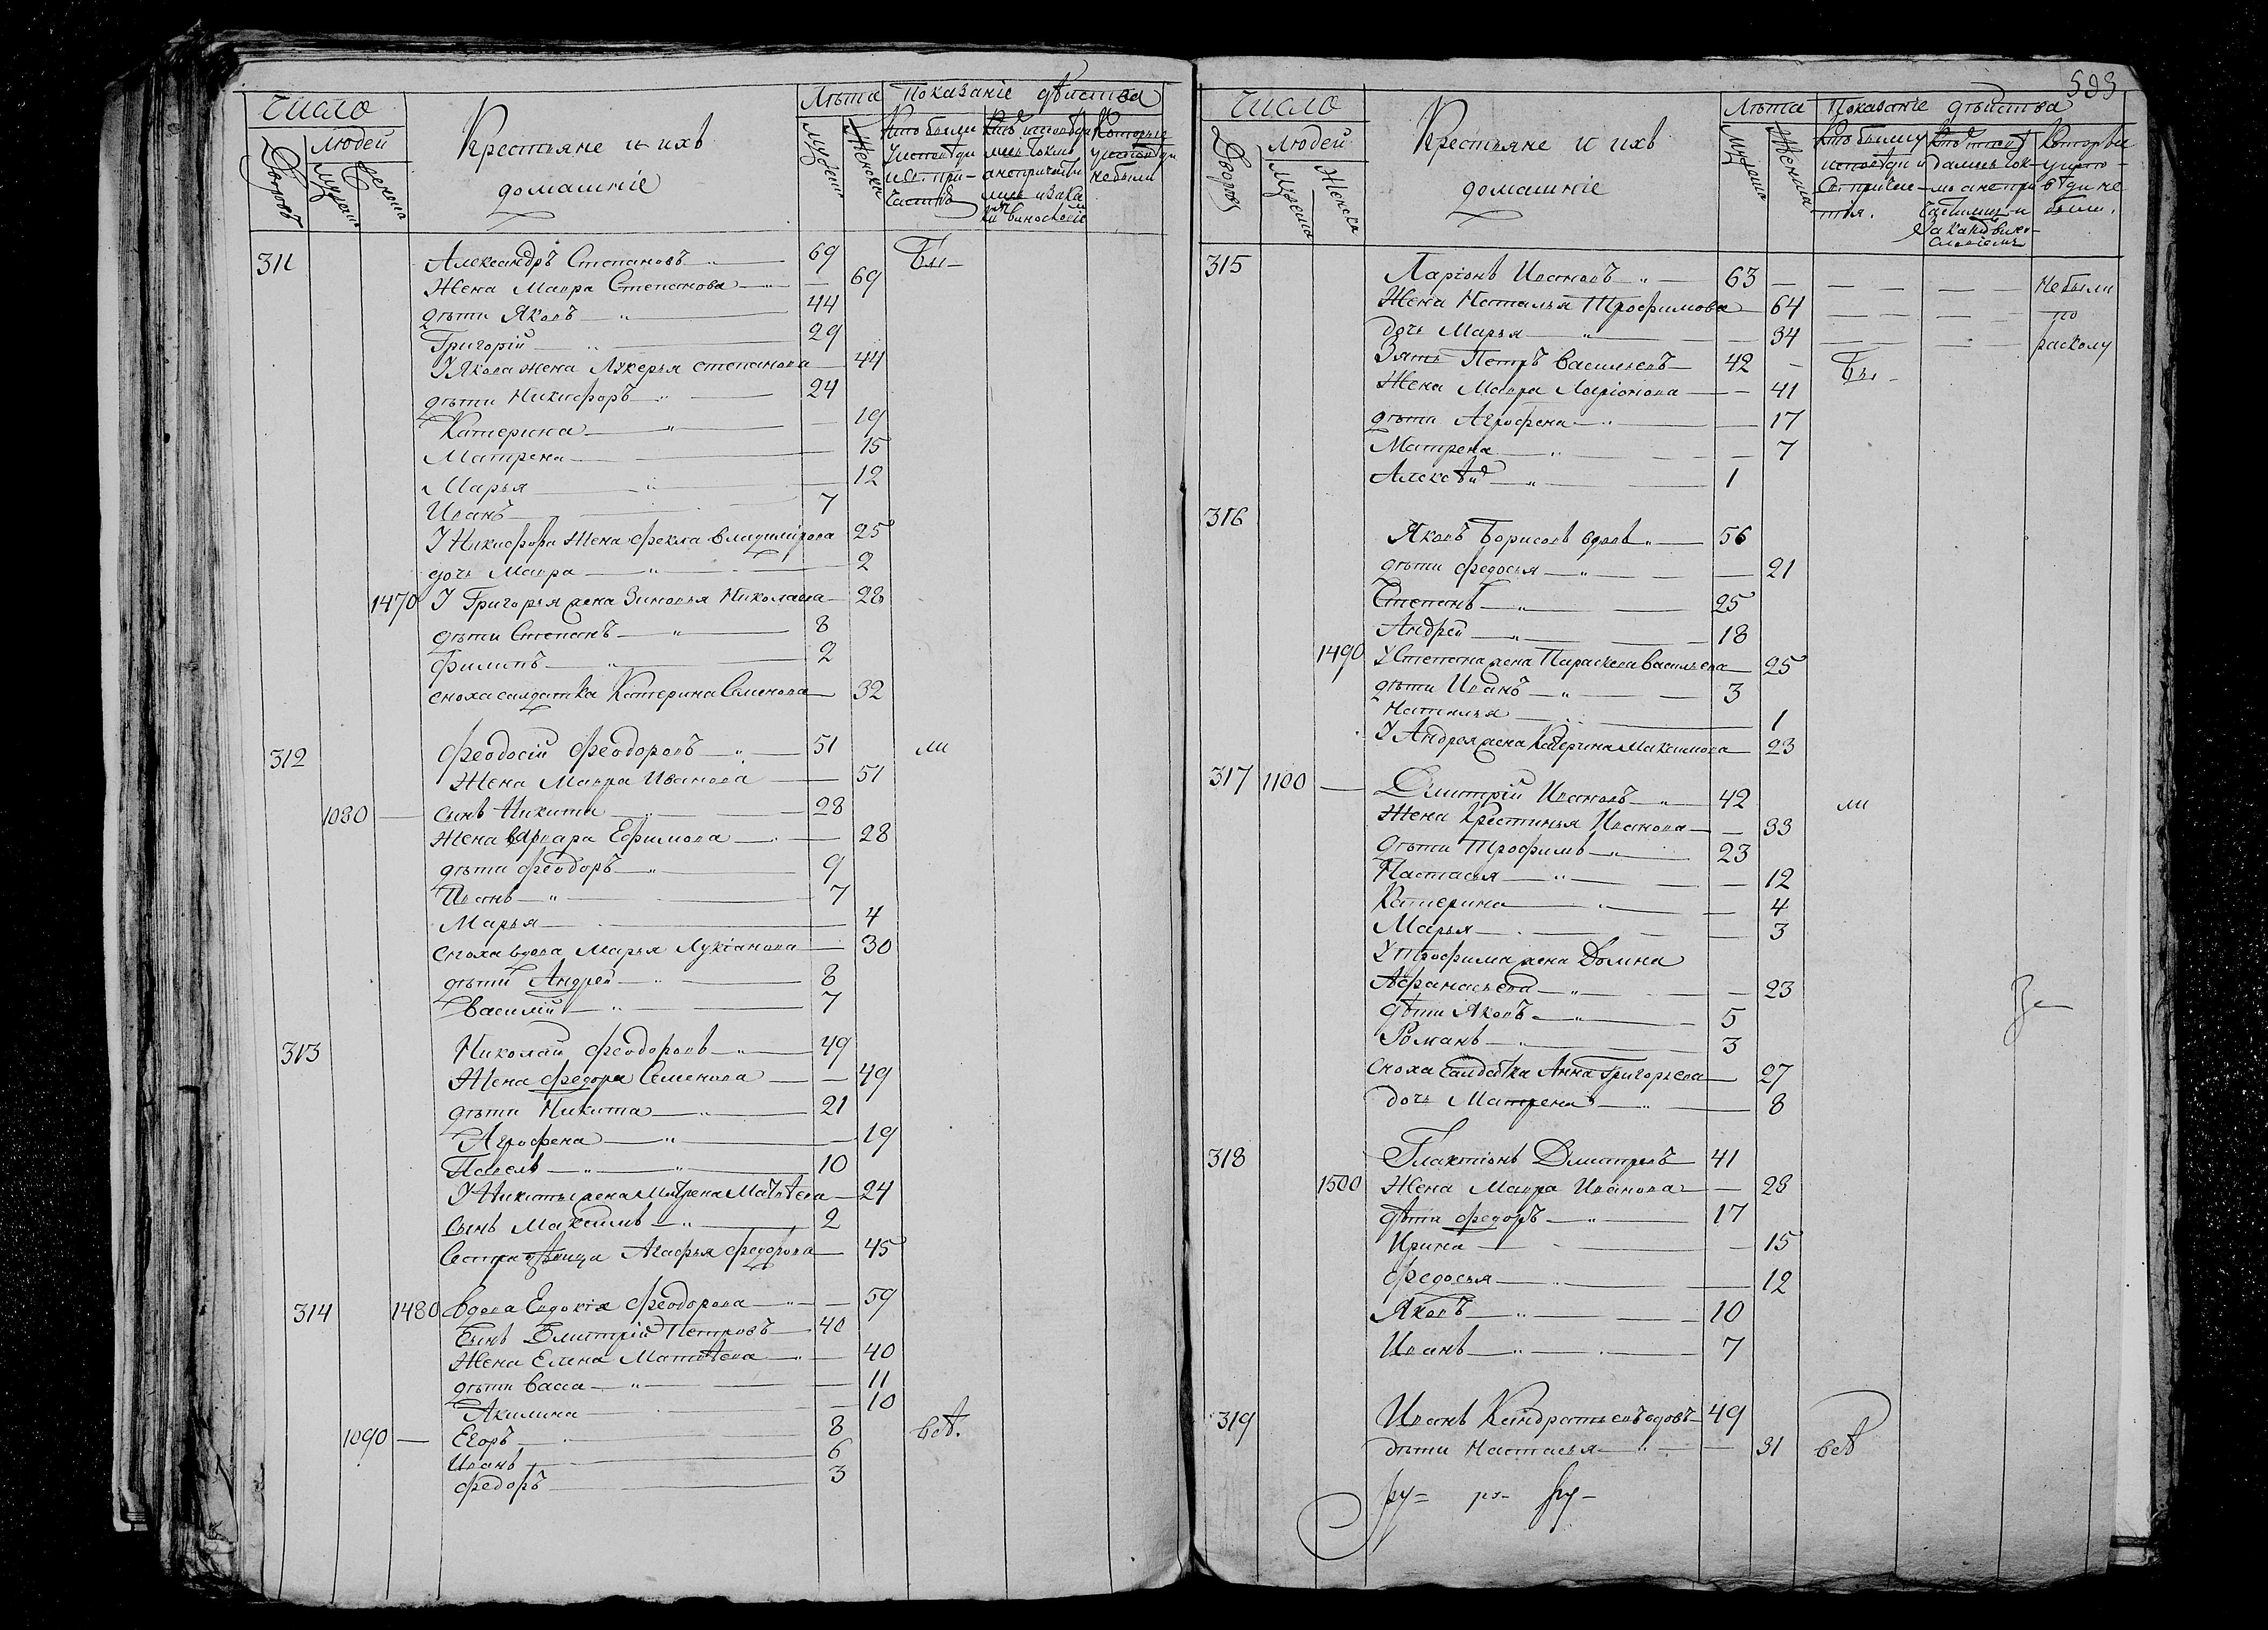 Число
людей
Дворовъ
Мужеск
Женска
Крестьяне и ихъ
домашніе
Лѣта
Мужеск
Женска
Показаніе дѣйства
Кто были
у исповѣди
и с. при-
частія
Которые
у исповѣди
небыли
311 Александръ Степановъ 69 Бы-
Жена Мавра Степанова 69
дѣти Яковъ 44
Григорій 29
У Якова жена Лукерья Степанова 44
дѣти Никифоръ 24
Катерина 19
Матрена 15
Марья 12
Иванъ 7
У Никифора Жена Фекла Владимірова 25
дочь Мавра 2
1470 У Григорья жена Зиновья Николаева 28
дѣти Степанъ 8
Филипъ 2
сноха салдатка Катерина Семенова 32
312 Феодосій Феодоровъ 51 ли
Жена Мавра Иванова 51
1080 сынъ Никита 28
Жена Варвара Ефимова 28
дѣти Феодоръ 9
Иванъ 7
Марья 4
сноха вдова Марья Лукіанова 30
дѣти Андрей 8
Василій 7
313 Николай Феодоровъ 49
Жена Федора Семенова 49
дѣти Никита 21
Агрофена 19
Павелъ 10
У Никиты жена Матрена Матвѣева 24
сынъ Максимъ 2
Сестра дѣвица Агафья Федорова 45
314 1480 Вдова Евдокія Феодорова 59
Сынъ Дмитрій Петровъ 40
Жена Елена Матвѣева 40
дѣти Васса 11
Акилина 10
1090 Егоръ 8 всѣ.
Иванъ 6
Федоръ 3
593
Число
людей
Дворовъ
Мужеска
Женска
Крестьяне и ихъ
домашніе
Лѣта
Мужеска
Женска
Показаніе дѣйства
Кто были у
исповѣди и
Св. причас-
тія.
Которыи
у испо-
вѣди не
были.
315 Ларіонъ Ивановъ 63 Небыли
Жена Наталья Трофимова 64 по
дочь Марья 34 расколу
Зять Петръ Васильевъ 42 Бы-
Жена Мавра Ларіонова 41
дѣти Агрофена 17
Матрена 7
Алексѣй 1
316 Яковъ Борисовъ вдовъ 56
дѣти Федосья 21
Степанъ 25
Андрей 18
1490 У Степана жена Параскева Васильева 25
дѣти Иванъ 3
Наталья 1
У Андрея жена Катерина Максимова 23
317 1100 Дмитрій Ивановъ 42 ли
Жена Крестинья Иванова 33
Дѣти Трофимъ 23
Настасья 12
Катерина 4
Марья 3
У Трофима жена Домна
Афанасьева 23
дѣти Яковъ 5
Романъ 3
Сноха Салдатка Анна Григорьева 27
дочь Матрена 8
318 Галактіонъ Дмитревъ 41
1500 Жена Мавра Иванова 28
дѣти Федоръ 17
Ирина 15
Федосья 12
Яковъ 10
Иванъ 7
319 Иванъ Кандратьевъ вдовъ 49
дѣти Настасья 31 всѣ